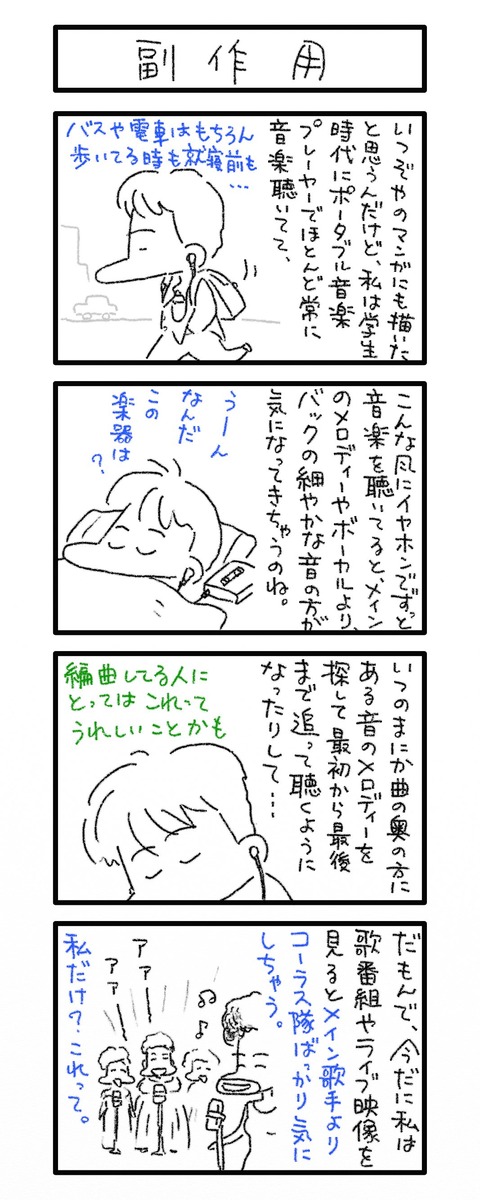 副作用
いつぞやのマンガにも描いた
と思うんだけど、私は学生
時代にポータブル音楽
プレーヤーでほとんど常に
音楽聴いてて、
バスや電車はもちろん
歩いてる時も就寝前も
…
こんな風にイヤホンでずっと
音楽を聴いてると、メイン
のメロディーやボーカルより、
バックの細やかな音の方が
気になってきちゃうのね。
うーん
なんだ
この
楽器は?
いつのまにか曲の奥の方に
ある音のメロディーを
探して最初から最後
まで追って聴くように
なったりして…
編曲してる人に
とってはこれって
うれしいことかも
だもんで、今だに私は
歌番組やライブ映像を
見るとメイン歌手より
コーラス隊ばっかり気に
しちゃう。
アァ
アァ
私だけ?これって。